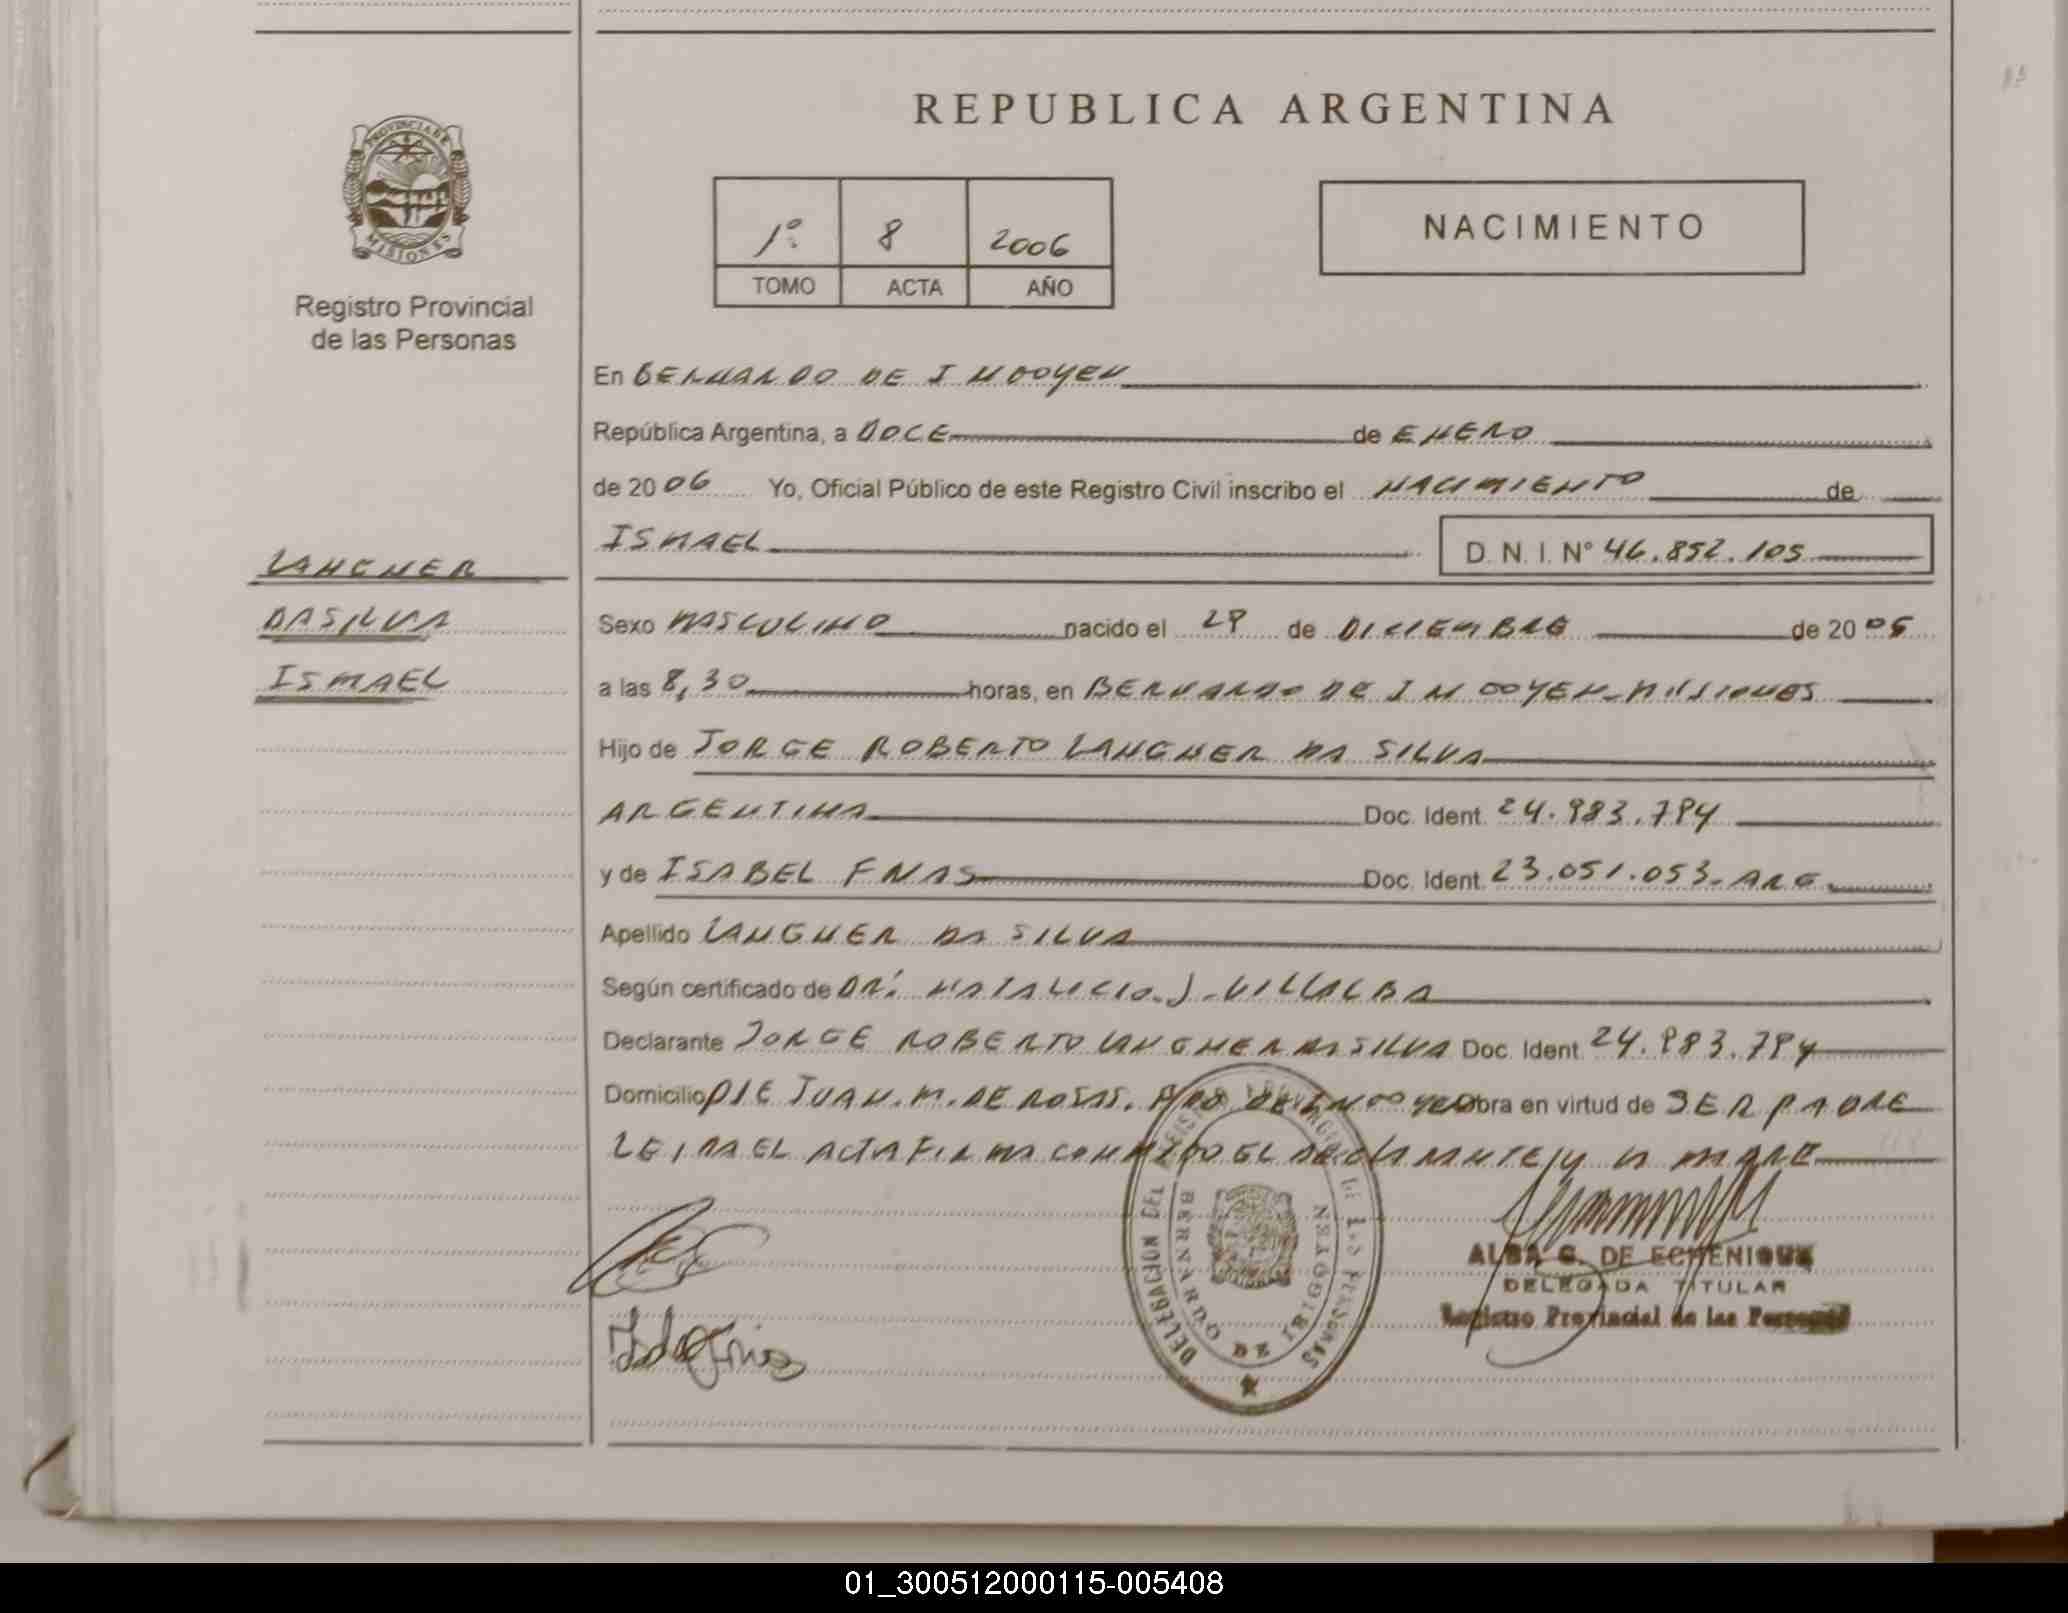 REPUBLICA ARGENTINA
PROVINCIA DE MISIONES
Registro Provincial
de las Personas
1º 8 2006
TOMO ACTA AÑO
NACIMIENTO
En BERNARDO DE IRIGOYEN
República Argentina, a DOCE de ENERO
de 2006 Yo, Oficial Público de este Registro Civil inscribo el NACIMIENTO de
ISMAEL D. N. I. Nº 46.852.105
LANGNER
DA SILVA
ISMAEL
Sexo MASCULINO nacido el 29 de DICIEMBRE de 2005
a las 8,30 horas, en BERNARDO DE IRIGOYEN-MISIONES
Hijo de JORGE ROBERTO LANGNER DA SILVA
ARGENTINA Doc. Ident. 24.983.794
y de ISABEL Doc. Ident. 23.051.053-ARG.
Apellido LANGNER DA SILVA
Según certificado de DR. NATALICIO.J.VILLALBA
Declarante JORGE ROBERTO LANGNER DA SILVA Doc. Ident. 24.983.794
Domicilio JUAN.M.DE ROSAS. BDO DE IRIGOYEN obra en virtud de SER PADRE
LEIDA EL ACTA FIRMA CONMIGO EL DECLARANTE/Y LA MADRE
DELEGACION DEL REGISTRO PROVINCIAL DE LAS PERSONAS
BERNARDO DE IRIGOYEN
ALBA G. DE ECHENIQUE
DELEGADA TITULAR
Registro Provincial de las Personas
01_300512000115-005408